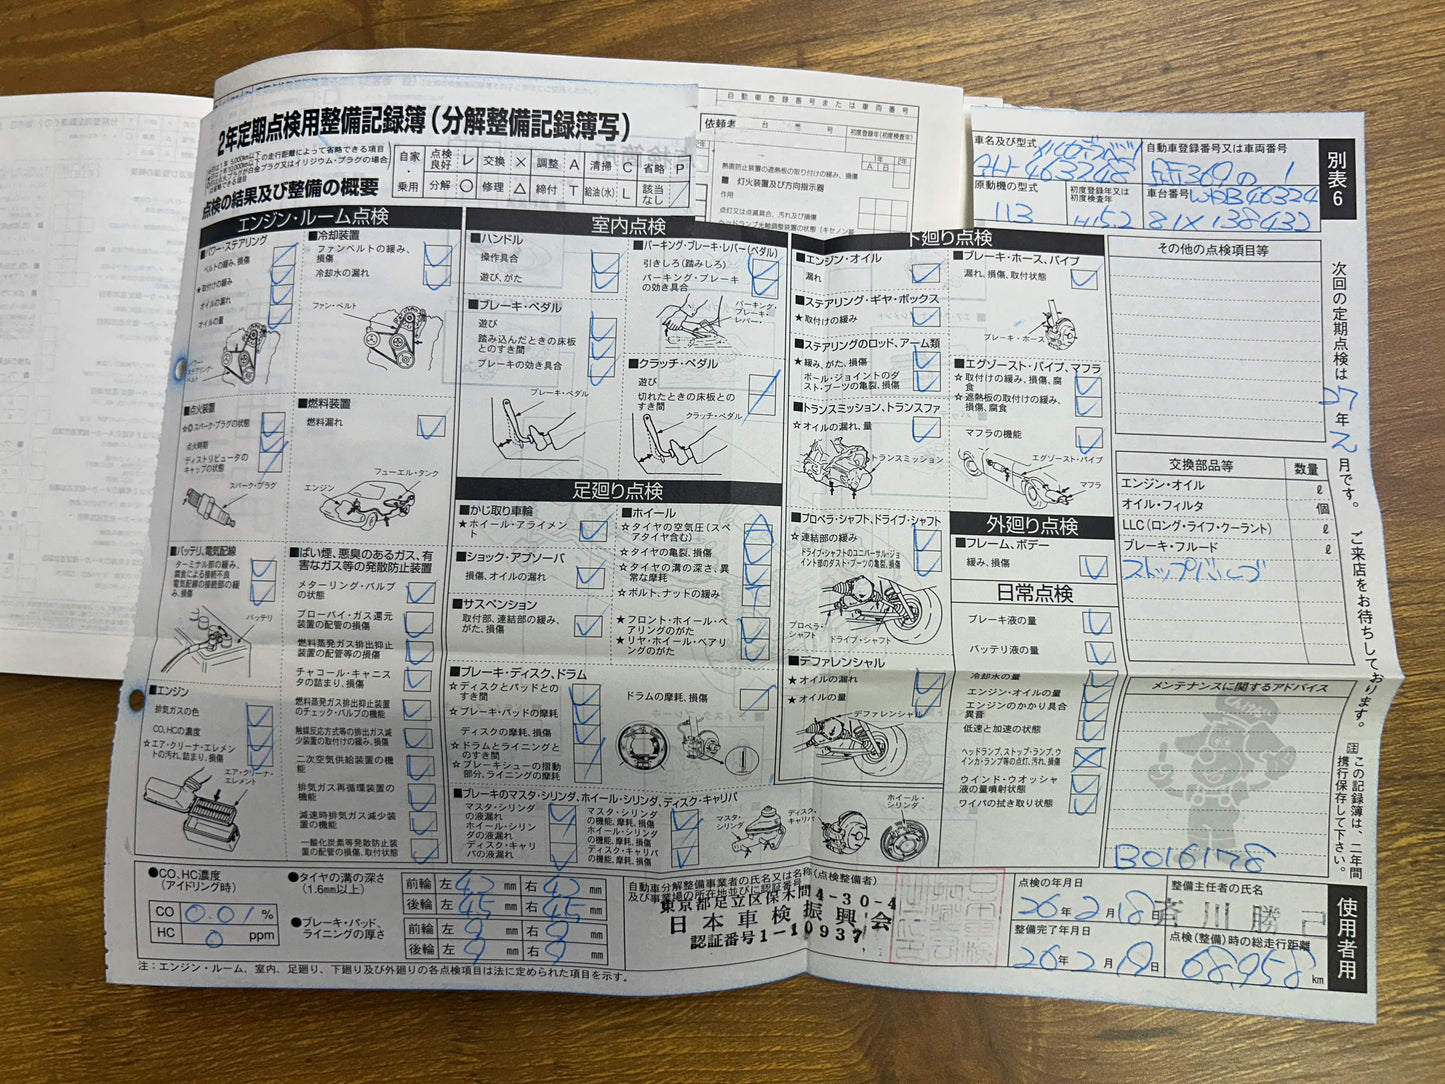 2年定期点検用整備記録簿(分解整備記録簿写)
点検の結果及び整備の概要
自家・乗用
点検良好 レ 交換 × 調整 A 清掃 C 省略 P
分解 ○ 修理 △ 締付 T 給油(水) L 該当なし /
依頼者
自動車登録番号または車両番号
初度登録年(初度検査年)
熱害防止装置の遮熱板の取り付けの緩み、損傷
■ 灯火装置及び方向指示器
作用
点灯又は点滅具合、汚れ及び損傷
車名及び型式
自動車登録番号又は車両番号
原動機の型式
113
初度登録年又は初度検査年
H15.2
車台番号
別表6
エンジン・ルーム点検
■パワー・ステアリング
ベルトの緩み、損傷
★取付けの緩み
オイルの漏れ
オイルの量
パワー・ステアリング・ベルト
■冷却装置
ファンベルトの緩み、損傷
冷却水の漏れ
ファン・ベルト
■点火装置
スパーク・プラグの状態
点火時期
ディストリビュータのキャップの状態
スパーク・プラグ
■燃料装置
燃料漏れ
フューエル・タンク
エンジン
■バッテリ、電気配線
ターミナル部の緩み、腐食による接続不良
電気配線の接続部の緩み、損傷
バッテリ
■ばい煙、悪臭のあるガス、有害なガス等の発散防止装置
メターリング・バルブの状態
ブローバイ・ガス還元装置の配管の損傷
燃料蒸発ガス排出抑止装置の配管等の損傷
チャコール・キャニスタの詰まり、損傷
燃料蒸発ガス排出抑止装置のチェック・バルブの機能
触媒反応方式等の排出ガス減少装置の取付けの緩み、損傷
二次空気供給装置の機能
排気ガス再循環装置の機能
減速時排気ガス減少装置の機能
一酸化炭素等発散防止装置の配管の損傷、取付状態
■エンジン
排気ガスの色
CO、HCの濃度
☆エア・クリーナ・エレメントの汚れ、詰まり、損傷
エア・クリーナ・エレメント
室内点検
■ハンドル
操作具合
遊び、がた
■ブレーキ・ペダル
遊び
踏み込んだときの床板とのすき間
ブレーキの効き具合
ブレーキ・ペダル
■パーキング・ブレーキ・レバー(ペダル)
引きしろ(踏みしろ)
パーキング・ブレーキの効き具合
パーキング・ブレーキ・レバー・
■クラッチ・ペダル
遊び
切れたときの床板とのすき間
クラッチ・ペダル
足廻り点検
■かじ取り車輪
★ホイール・アライメント
■ショック・アブソーバ
損傷、オイルの漏れ
■サスペンション
取付部、連結部の緩み、がた、損傷
■ホイール
☆タイヤの空気圧(スペアタイヤ含む)
☆タイヤの亀裂、損傷
☆タイヤの溝の深さ、異常な摩耗
☆ボルト、ナットの緩み
★フロント・ホイール・ベアリングのがた
★リヤ・ホイール・ベアリングのがた
■ブレーキ・ディスク、ドラム
☆ディスクとパッドとのすき間
☆ブレーキ・パッドの摩耗
ディスクの摩耗、損傷
☆ドラムとライニングとのすき間
☆ブレーキシューの摺動部分、ライニングの摩耗
ドラムの摩耗、損傷
■ブレーキのマスタ・シリンダ、ホイール・シリンダ、ディスク・キャリパ
マスタ・シリンダの液漏れ
ホイール・シリンダの液漏れ
ディスク・キャリパの液漏れ
マスタ・シリンダの機能、摩耗、損傷
ホイール・シリンダの機能、摩耗、損傷
ディスク・キャリパの機能、摩耗、損傷
マスタ・シリンダ
ディスク・キャリパ
ホイール・シリンダ
下廻り点検
■エンジン・オイル
漏れ
■ステアリング・ギヤ・ボックス
★取付けの緩み
■ステアリングのロッド、アーム類
★緩み、がた、損傷
ボール・ジョイントのダスト・ブーツの亀裂、損傷
■トランスミッション、トランスファ
☆オイルの漏れ、量
トランスミッション
■プロペラ・シャフト、ドライブ・シャフト
☆連結部の緩み
ドライブ・シャフトのユニバーサル・ジョイント部のダスト・ブーツの亀裂、損傷
プロペラ・シャフト
ドライブ・シャフト
■デファレンシャル
★オイルの漏れ
★オイルの量
デファレンシャル
■ブレーキ・ホース、パイプ
漏れ、損傷、取付状態
ブレーキ・ホース
■エグゾースト・パイプ、マフラ
☆取付けの緩み、損傷、腐食
☆遮熱板の取付けの緩み、損傷、腐食
マフラの機能
エグゾースト・パイプ
マフラ
外廻り点検
■フレーム、ボデー
緩み、損傷
日常点検
ブレーキ液の量
バッテリ液の量
冷却水の量
エンジン・オイルの量
エンジンのかかり具合異音
低速と加速の状態
ヘッドランプ、ストップ・ランプ、ウインカ・ランプ等の点灯、汚れ、損傷
ウインド・ウオッシャ液の量噴射状態
ワイパの拭き取り状態
その他の点検項目等
交換部品等 数量
エンジン・オイル ℓ
オイル・フィルタ 個
LLC(ロング・ライフ・クーラント) ℓ
ブレーキ・フルード ℓ
ストップバルブ
メンテナンスに関するアドバイス
B016178
次回の定期点検は27年2月です。ご来店をお待ちしております。
注 この記録簿は、二年間携行保存して下さい。
●CO、HC濃度(アイドリング時)
CO 0.01 %
HC 0 ppm
●タイヤの溝の深さ(1.6mm以上)
前輪 左 4.5 mm 右 4.5 mm
後輪 左 4.5 mm 右 4.5 mm
●ブレーキ・パッド、ライニングの厚さ
前輪 左 9 mm 右 9 mm
後輪 左 9 mm 右 9 mm
自動車分解整備事業者の氏名又は名称(点検整備者)及び事業場の所在地並びに認証番号
東京都足立区保木間4-30-4
日本車検振興会
認証番号1-10937
点検の年月日
26年2月18日
整備完了年月日
26年2月19日
整備主任者の氏名
斉川勝己
点検(整備)時の総走行距離
68,958 km
使用者用
注:エンジン・ルーム、室内、足廻り、下廻り及び外廻りの各点検項目は法に定められた項目を示す。